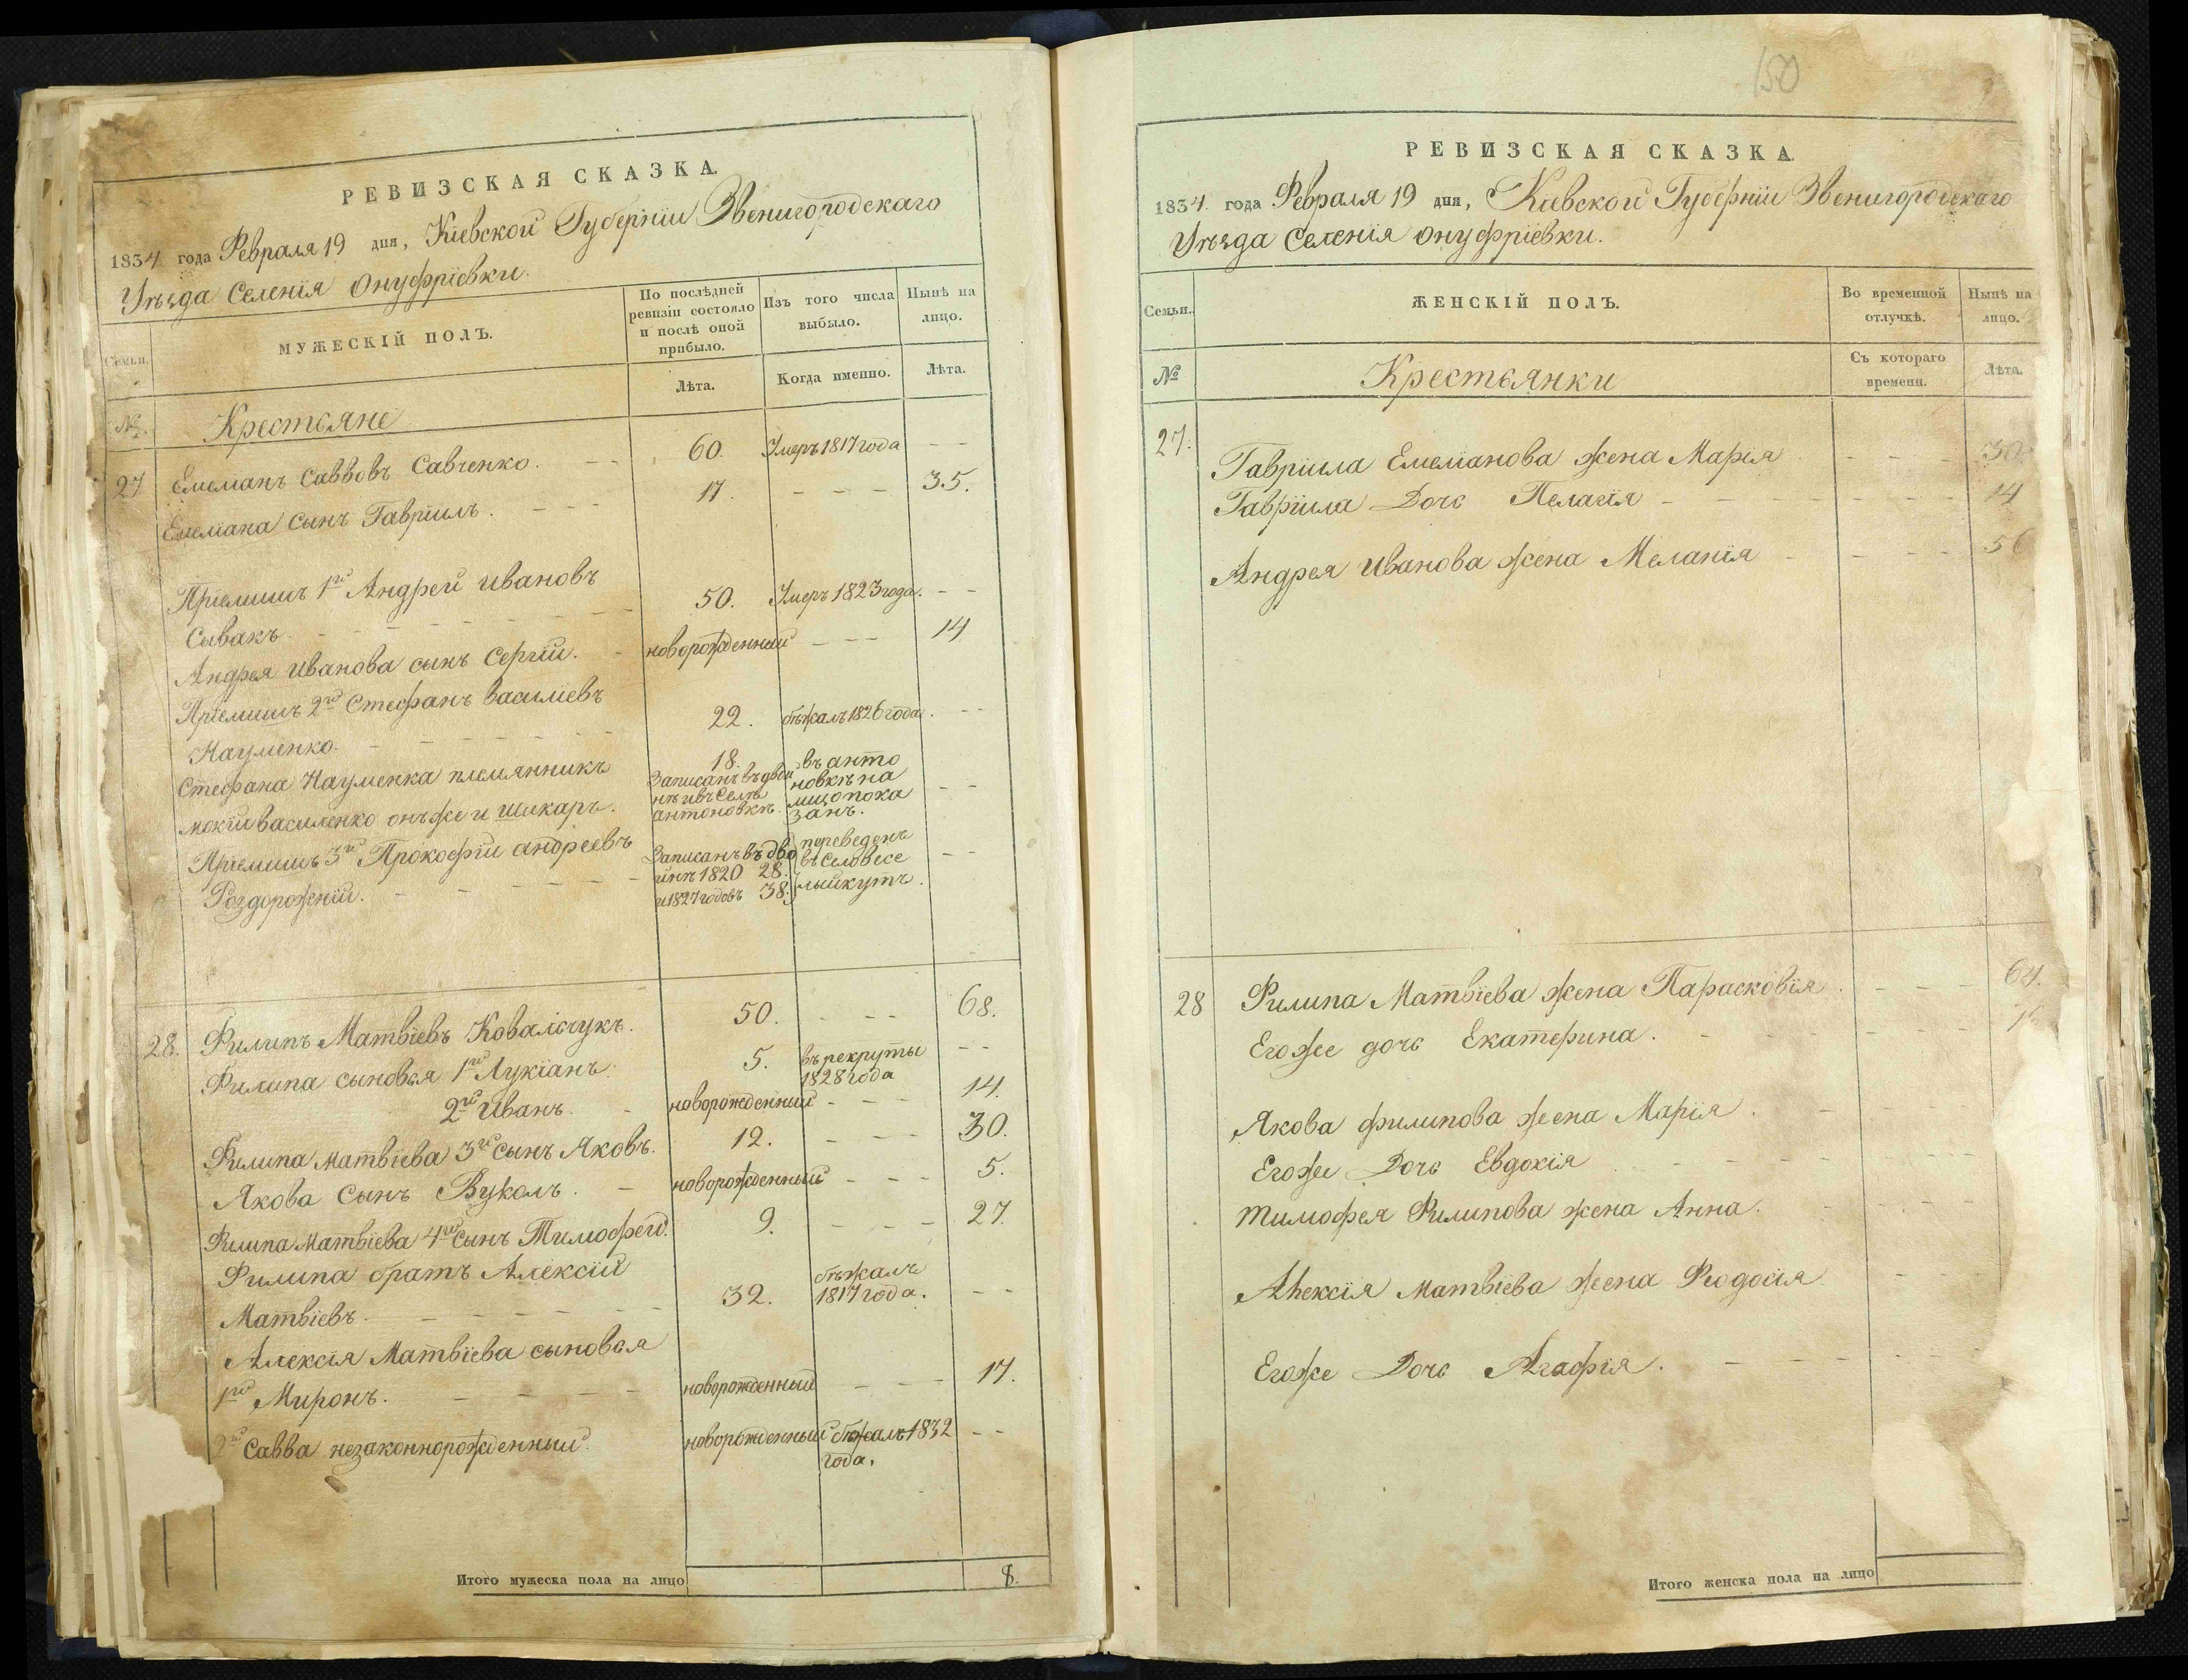 РЕВИЗСКАЯ СКАЗКА.
1834 года Февраля 19 дня, Кіевской Губерніи Звенигородскаго
Уѣзда Селенія Онуфріевки.
Семьи.
МУЖЕСКІЙ ПОЛЪ.
По послѣдней ревизіи состояло и послѣ оной прибыло.
Изъ того числа выбыло.
Нынѣ на лицо.
Лѣта.
Когда именно.
Лѣта.
№.
Крестьяне
27 Емелианъ Саввовъ Савченко. 60. Умеръ 1817 года
Емелиана сынъ Гавріилъ. 17. 35.
Пріемышъ 1й Андрей Ивановъ
Сывакъ. 50. Умеръ 1823 года.
Андрея Иванова сынъ Сергій. новорожденный 14
Пріемышъ 2й Стефанъ Василіевъ
Науменко. 22. бѣжалъ 1826 года.
Стефана Науменка племянникъ
Мокій Василенко онъ же и Шикаръ.
18.
Записанъ въ двой
нѣ и въ Селѣ
антоновкѣ.
въ анто
новкѣ на
лицо пока
занъ.
Пріемышъ 3й Прокофій Андреевъ
Роздорожній.
Записанъ въ дво
йнѣ 1820 28.
и 1827 годовъ 38.
переведенъ
въ Село Весе
лый кутъ.
28. Филипъ Матвіевъ Ковальчукъ. 50. 68.
Филипа сыновья 1й Лукіанъ. 5. въ рекруты 1828 года
2й Иванъ. новорожденный 14.
Филипа Матвіева 3й сынъ Яковъ. 12. 30.
Якова Сынъ Вуколъ. новорожденный 5.
Филипа Матвіева 4й сынъ Тимофей. 9. 27.
Филипа братъ Алексій
Матвіевъ. 32. бѣжалъ 1817 года.
Алексія Матвіева сыновья
1й Миронъ. новорожденный 17.
2й Савва незаконнорожденный. новорожденный бѣжалъ 1832 года.
Итого мужеска пола на лицо 8.
150
РЕВИЗСКАЯ СКАЗКА.
1834 года Февраля 19 дня, Кіевской Губерніи Звенигородскаго
Уѣзда Селенія Онуфріевки.
Семьи.
ЖЕНСКІЙ ПОЛЪ.
Во временной отлучкѣ.
Нынѣ на лицо.
№
Крестьянки
Съ котораго времени.
Лѣта.
27. Гавріила Емеліанова жена Марія 30.
Гавріила Дочь Пелагія 14
Андрея Иванова жена Меланія
28 Филипа Матвіева жена Парасковія. 64.
Его же дочь Екатерина.
Якова Филипова жена Марія.
Его же Дочь Евдокія
Тимофея Филипова жена Анна.
Алексія Матвіева жена Феодосія
Его же Дочь Агафія.
Итого женска пола на лицо